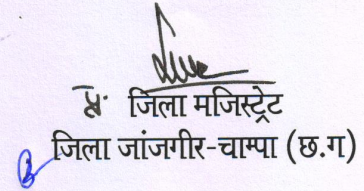 जिला मजिस्ट्रेट
जिला जांजगीर-चाम्पा (छ.ग)